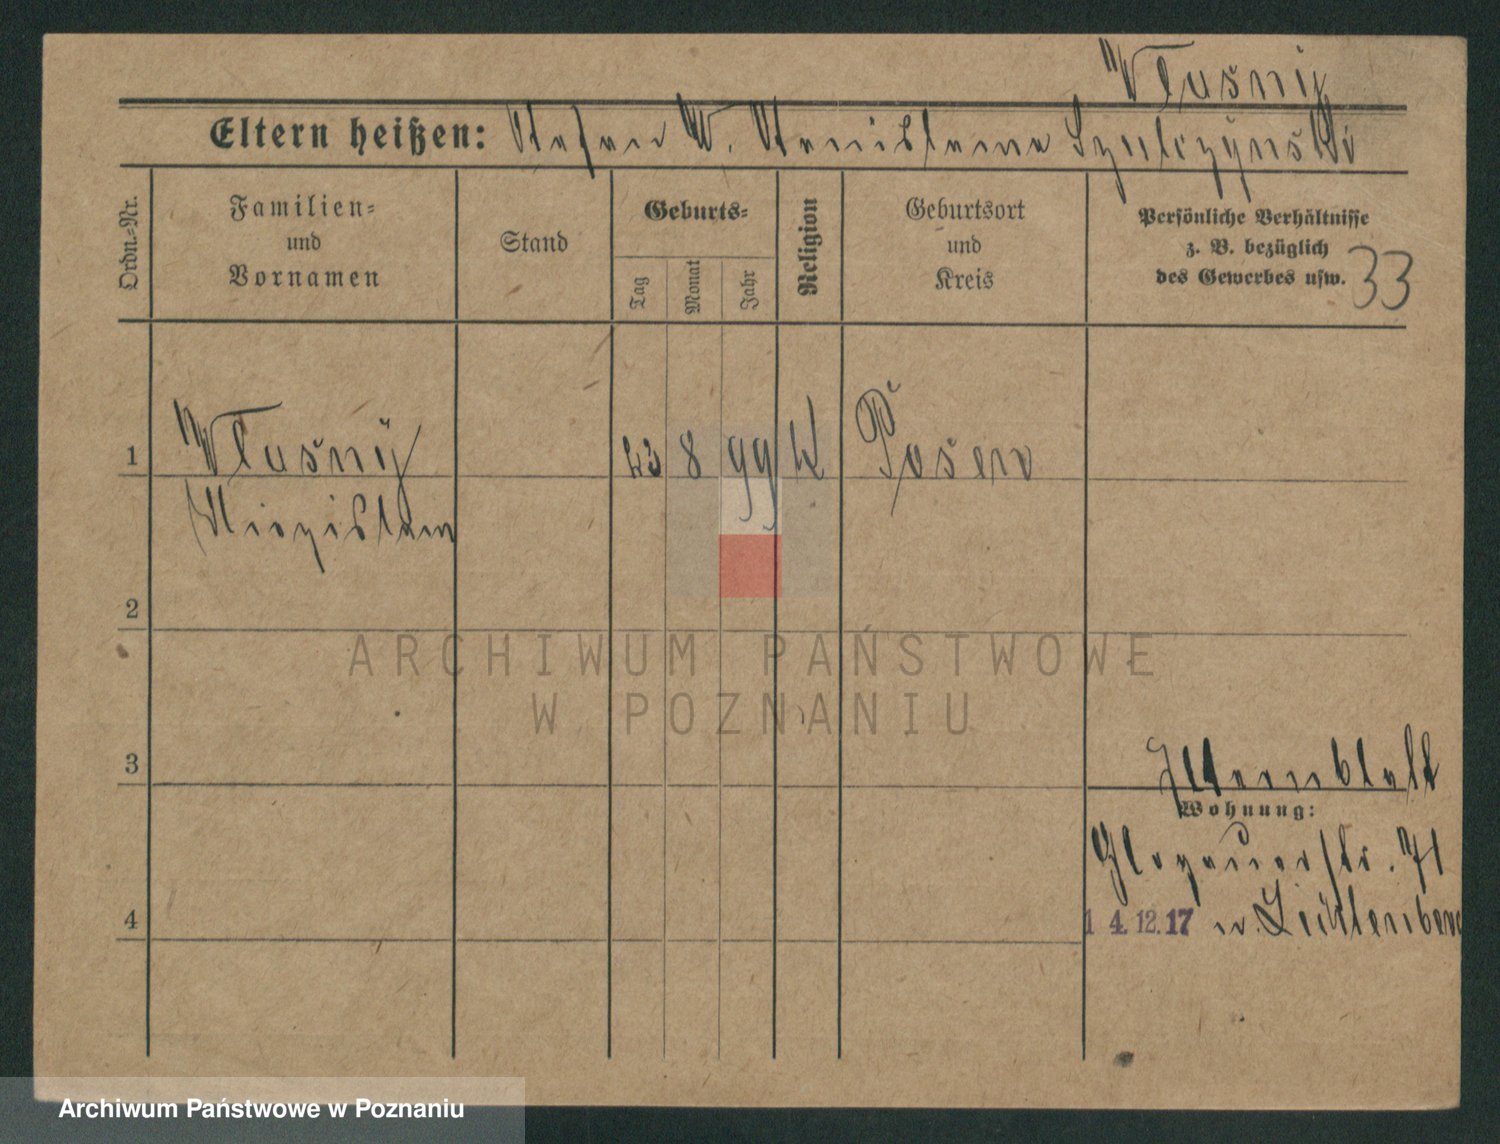 Własny
Eltern heißen: Stefan u. Stanislawa Szulczynski
Ordn.-Nr.
Familien-
und
Vornamen
Stand
Geburts-
Tag
Monat
Jahr
Religion
Geburtsort
und
Kreis
Persönliche Verhältnisse
z. B. bezüglich
des Gewerbes usw.
33
1
Własny
23 8 99 K Posen
2
3
4
Wohnung:
Glogauerstr. 71
1 4.12.17 n. Lichtenberg
ARCHIWUM PAŃSTWOWE
W POZNANIU
Archiwum Państwowe w Poznaniu